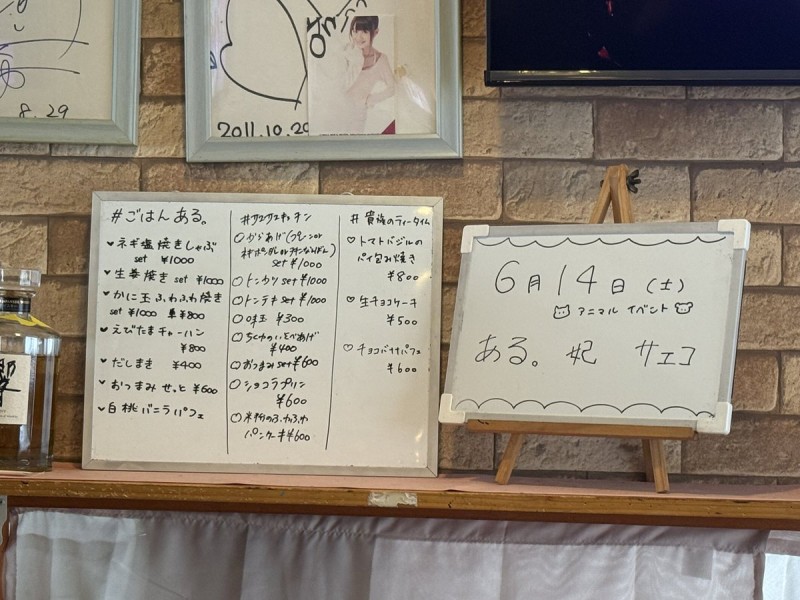 8.29
2011.10.20
#ごはんある。
ネギ塩焼きしゃぶ
set ¥1000
生姜焼き set ¥1000
かに玉ふわふわ焼き
set ¥1000 単¥800
えびたまチャーハン
¥800
だしまき ¥400
おつまみせっと ¥600
白桃バニラパフェ
からあげ(プレーンor
set ¥1000
トンカツ set ¥1000
トンテキ set ¥1000
味玉 ¥300
¥400
おつまみ set ¥600
ショコラプリン
¥600
米粉のふわふわ
パンケーキ ¥600
# 貴族のティータイム
トマトバジルの
パイ包み焼き
¥800
生チョコケーキ
¥500
チョコバナナパフェ
¥600
6月14日(土)
アニマル イベント
ある。 妃 サエコ
響